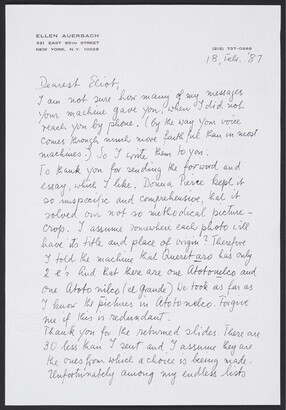 ELLEN AUERBACH
331 EAST 89TH STREET
NEW YORK, N.Y. 10028
18, Feb. '87
Dearest Eliot,
I am not sure how many of my messages
your machine gave you, when I did not
reach you by phone. (by the way your voice
comes through much more faithful than in most
machines.) So I write them to you.
To thank you for sending the forword and
essay, which I like. Donna Pierce kept it
so unspecific and comprehensive, that it
solved our not so methodical picture-
crop. I assume somewhere each photo will
have its title and place of origin? Therefore
I told the machine that Queretaro has only
2 e's And that there are one Atotonelco and
one Atotonilco (el grande) We took as far as
I know the pictures in Atotonelco. Forgive
me if this is redundant.
Thank you for the returned slides. There are
30 less than I sent and I assume they are
the ones from which a choice is being made.
Unfortunately among my endless lists